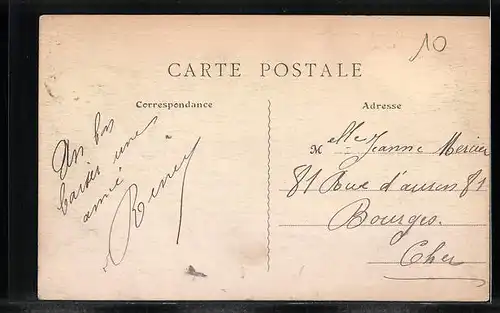 10
CARTE POSTALE
Correspondance
Un bon
baiser une
amie
Renée
Adresse
Melle Jeanne Mercier
81 Rue d'auron 81
Bourges.
Cher